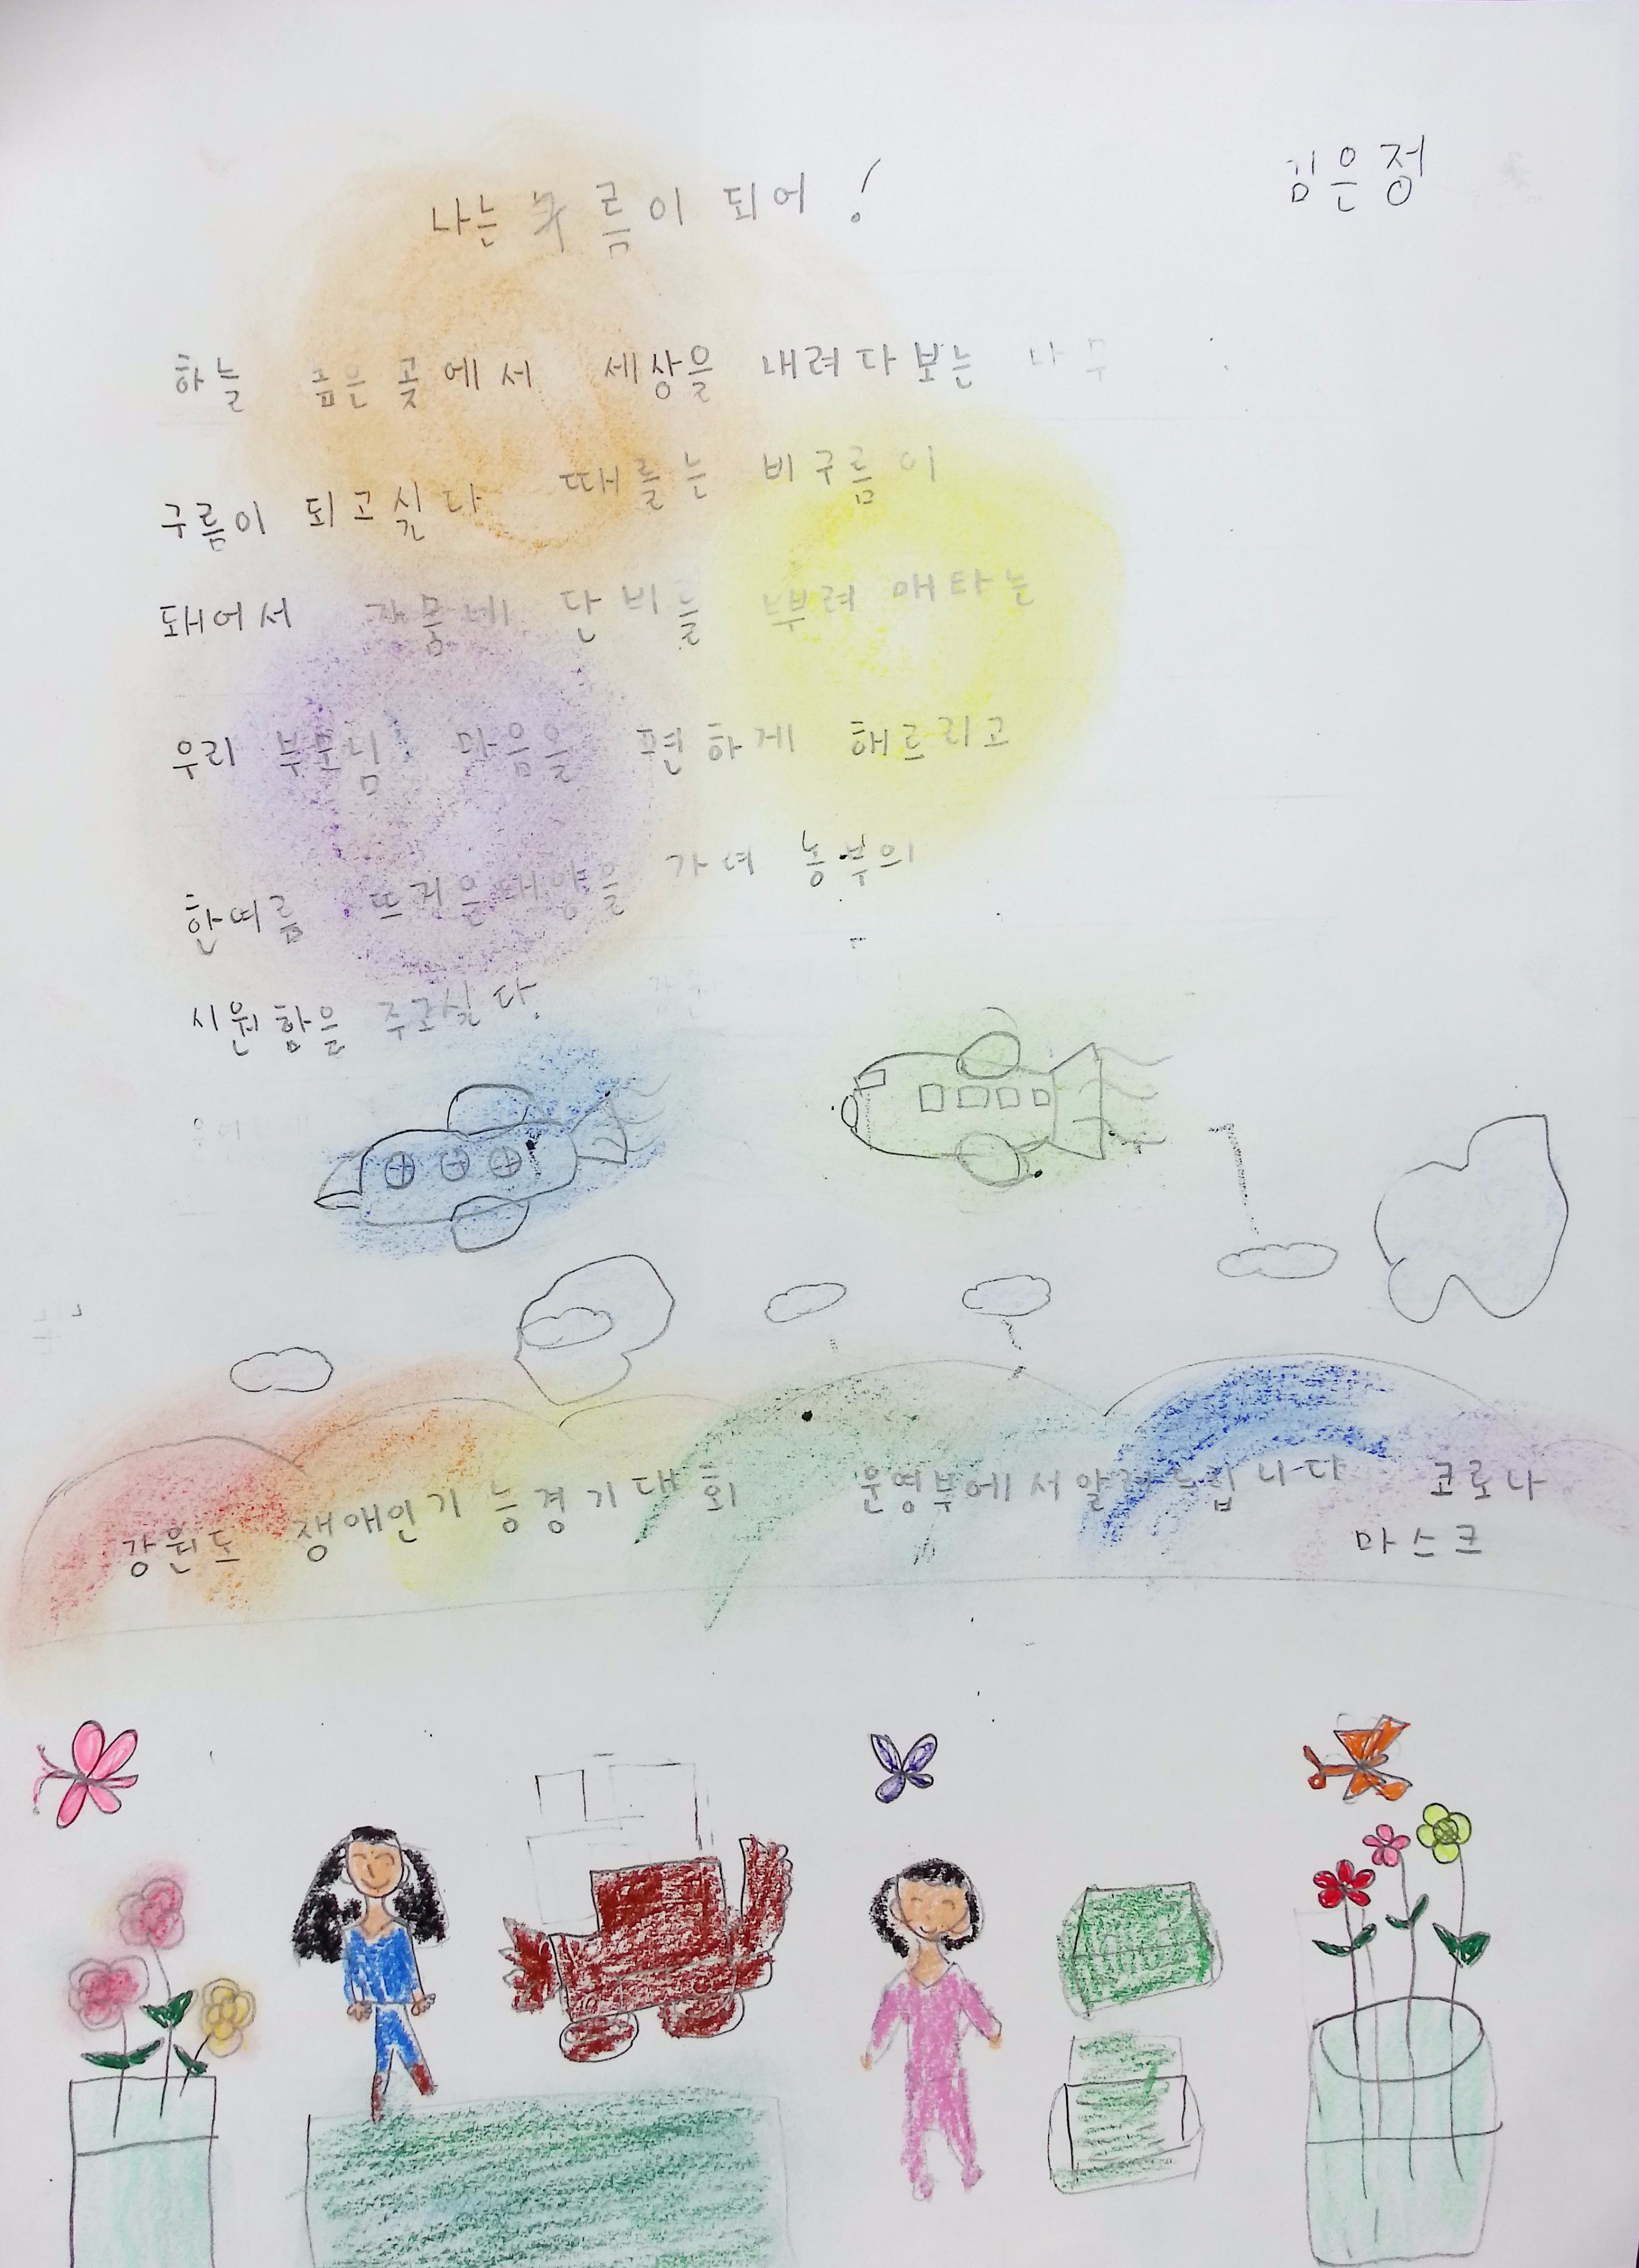 김은정
나는 구름이 되어!
하늘 높은 곳에서 세상을 내려다보는 나
구름이 되고싶다 때를는 비구름이
돼어서 단비를 애타는
우리 부모님 마음을 편하게 해르리고
한여름 뜨거운 태양을 가려 농부의
시원함을 주고싶다.
강원도 쟁애인기능경기대회 운영부에서알려드립니다 코로나
마스크